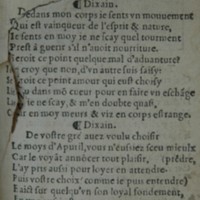 ¶ Dixain.
Dedans mon corps ie sents vn mouuement
Qui est vainqueur de l'esprit & nature,
Ie sents en moy ie ne scay quel tourment
Prest à guerir s'il n'auoit nourriture.
Seroit ce point quelque mal d'aduanture?
Ie croy que non, d'vn autre suis saisy:
Seroit ce point amour qui eust choisy
Lieu dans mõ cueur pour en faire vn eschãge
Ie ne scay, & m'en doubte quasi,
Car en moy meurs & viz en corps estrange.
¶ Dixain.
De vostre gré auez voulu choisir
Le moys d'Apuril, vous n'eussiez sceu mieulx
Car le voyãt annõcer tout plaisir, (prẽdre,
L'ay pris aussi pour loyer en attendre.
Puis vostre choix comme ie puis entendre)
Faict sur quelqu'vn son loyal fondement,